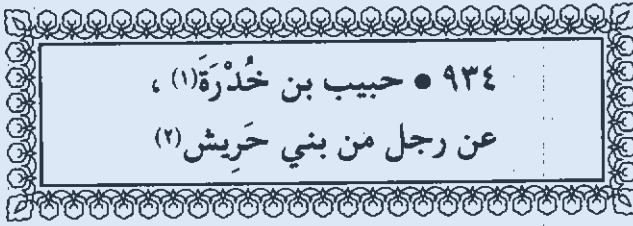 ٩٣٤ ● حبيب بن خُدْرَةَ(١) ،
عن رجل من بني حَرِيش(٢)